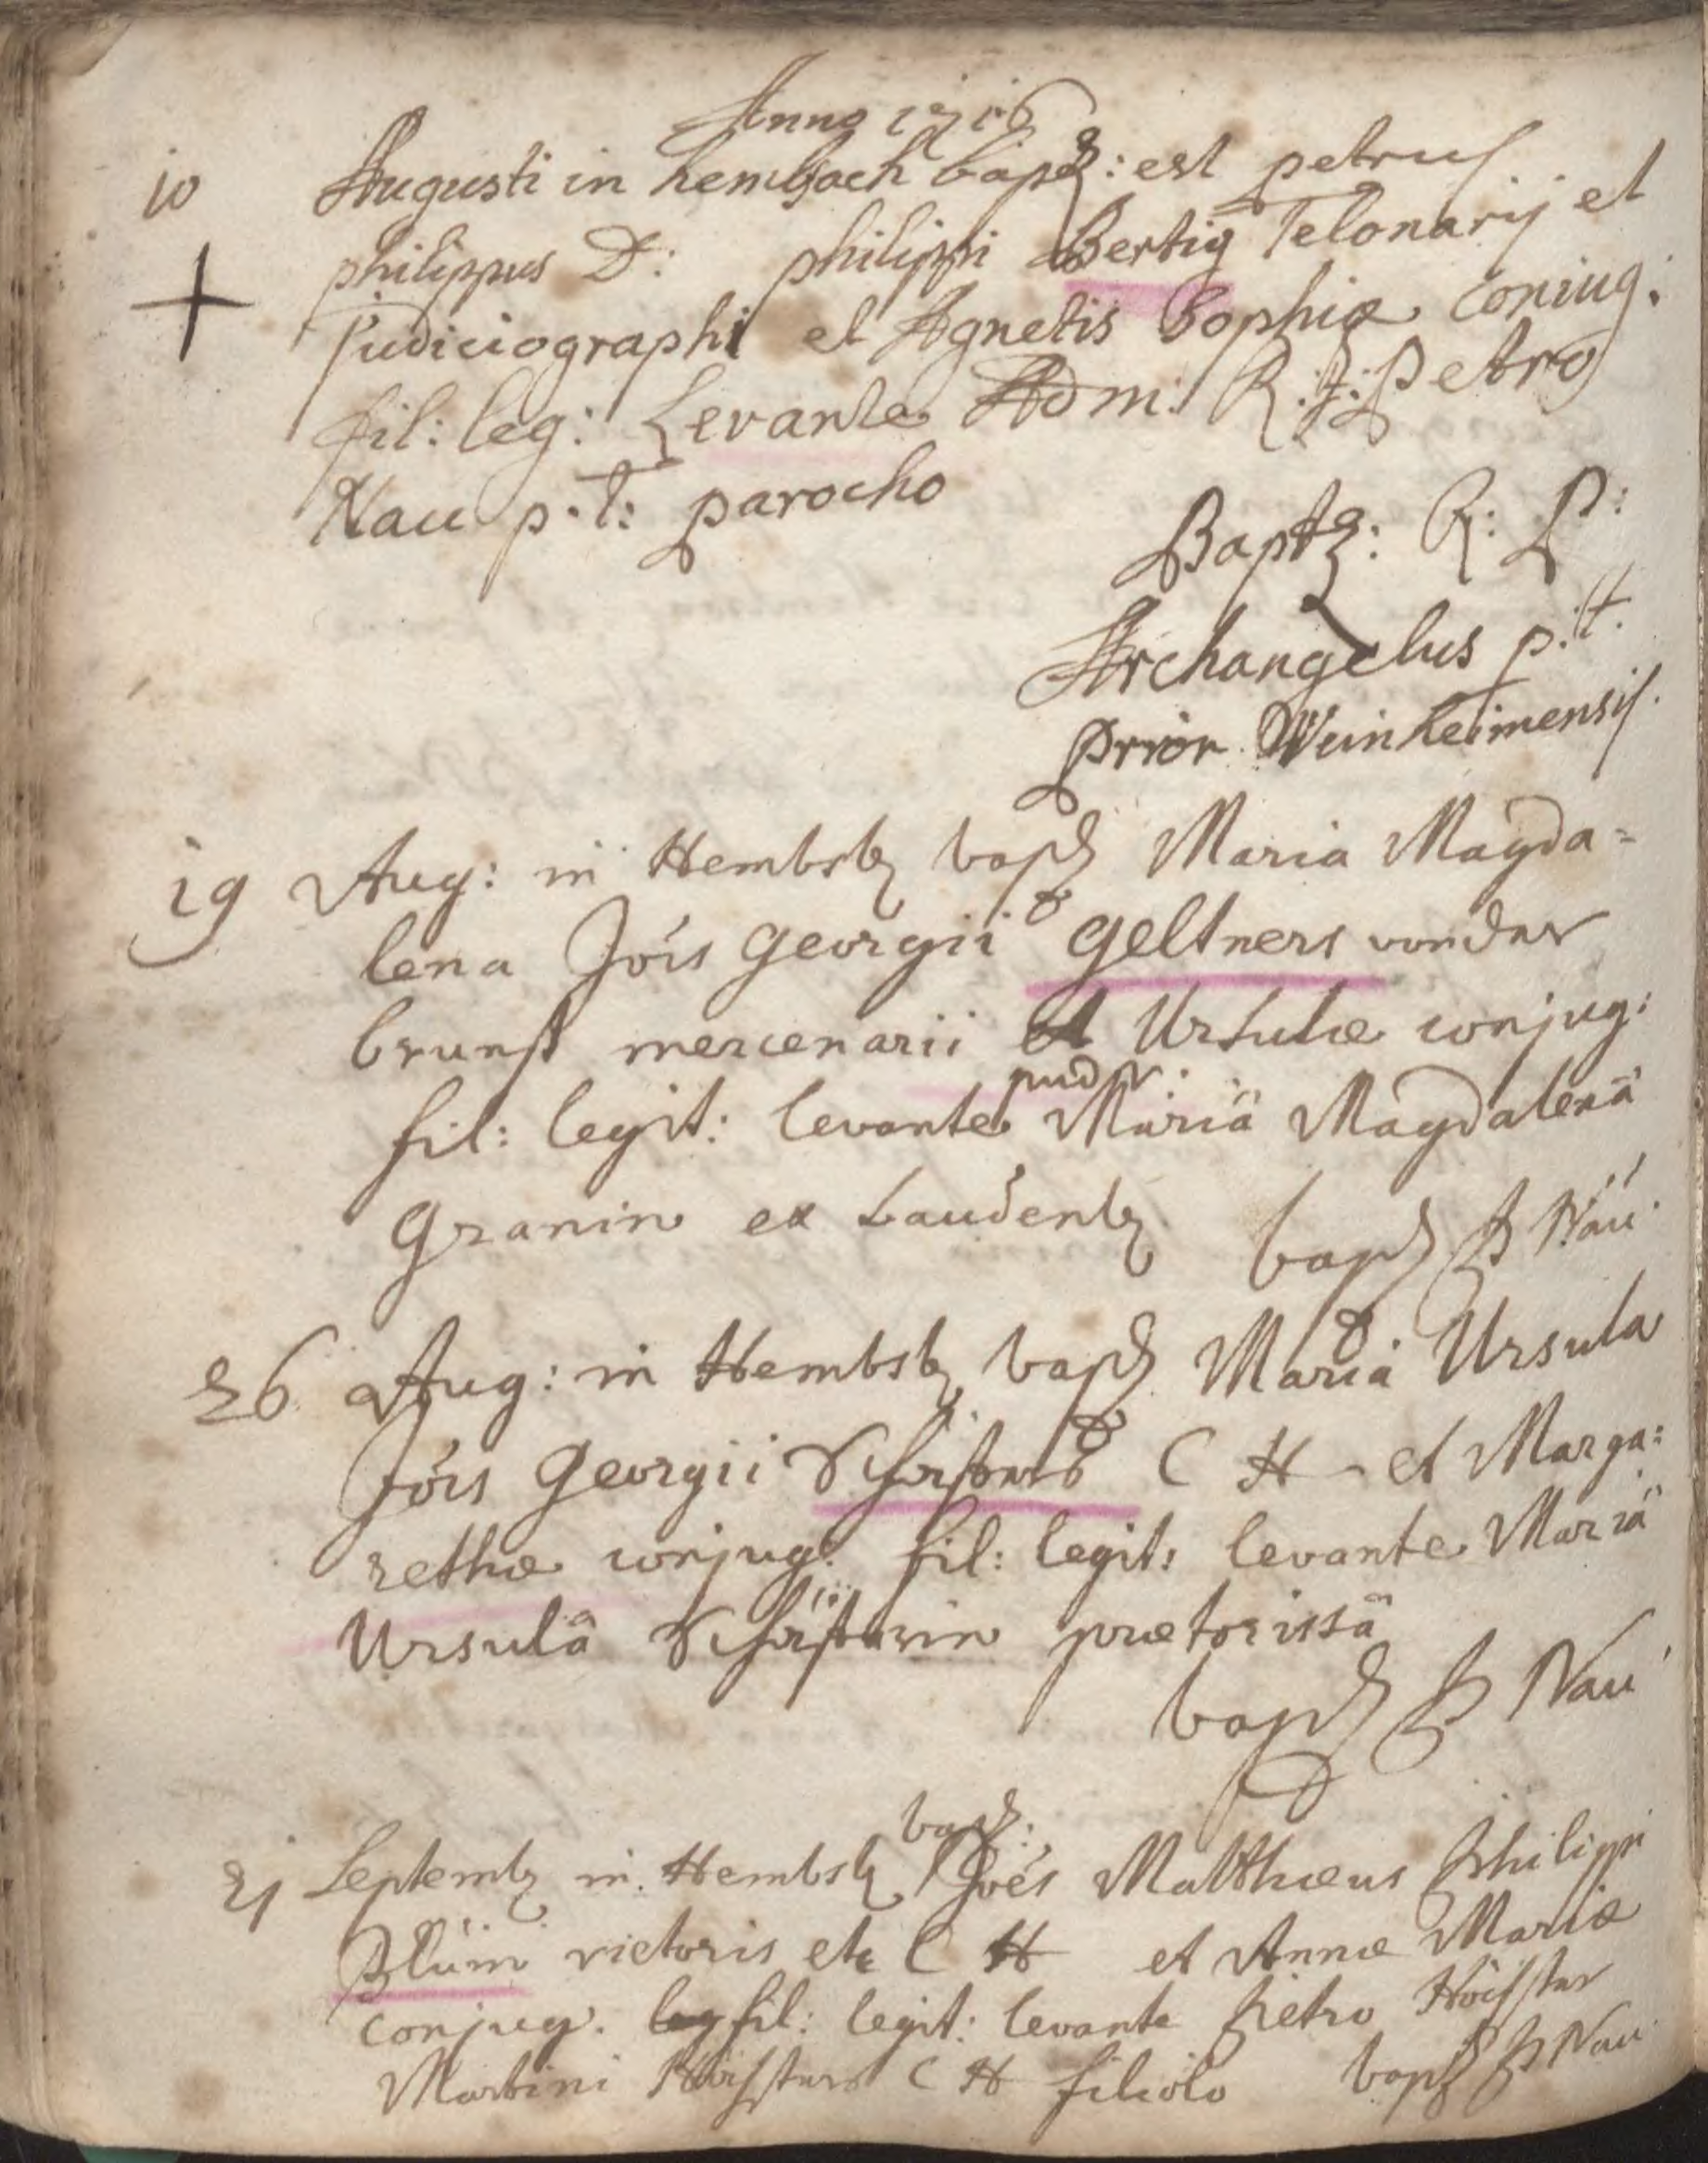 Anno 1716
10 Augusti in hembsach bapt: est petrus
philippus D: philippi Bertig Telonarij et
Judiciographi et Agnetis Sophiæ coniug:
fil: leg: Levante Adm: R: P: Petro
Nau p.t: parocho
Baptz: R: P:
Archangelus p.t.
prior Weinheimensis.
19 Aug: in Hembsb bapt Maria Magda=
lena Jois Georgii Geltners von der
brunst mercenarii et Ursulæ conjug:
fil: legit: levante pud: Mariâ Magdalenâ
Granin ex Laudenb
bapt P Nau
26 Aug: in Hembsb bapt Maria Ursula
Jois Georgii C H et Marga=
rethæ conjug: fil: legit: levante Mariâ
Ursulâ prætorissâ
bapt P Nau
21 Septemb in Hembsb bapt: Joes Matthæus Philippi
Blüm vietoris etc C H et Annæ Mariæ
conjug. leg fil: legit: levante Petro
Martini C H filiolo bapt P Nau